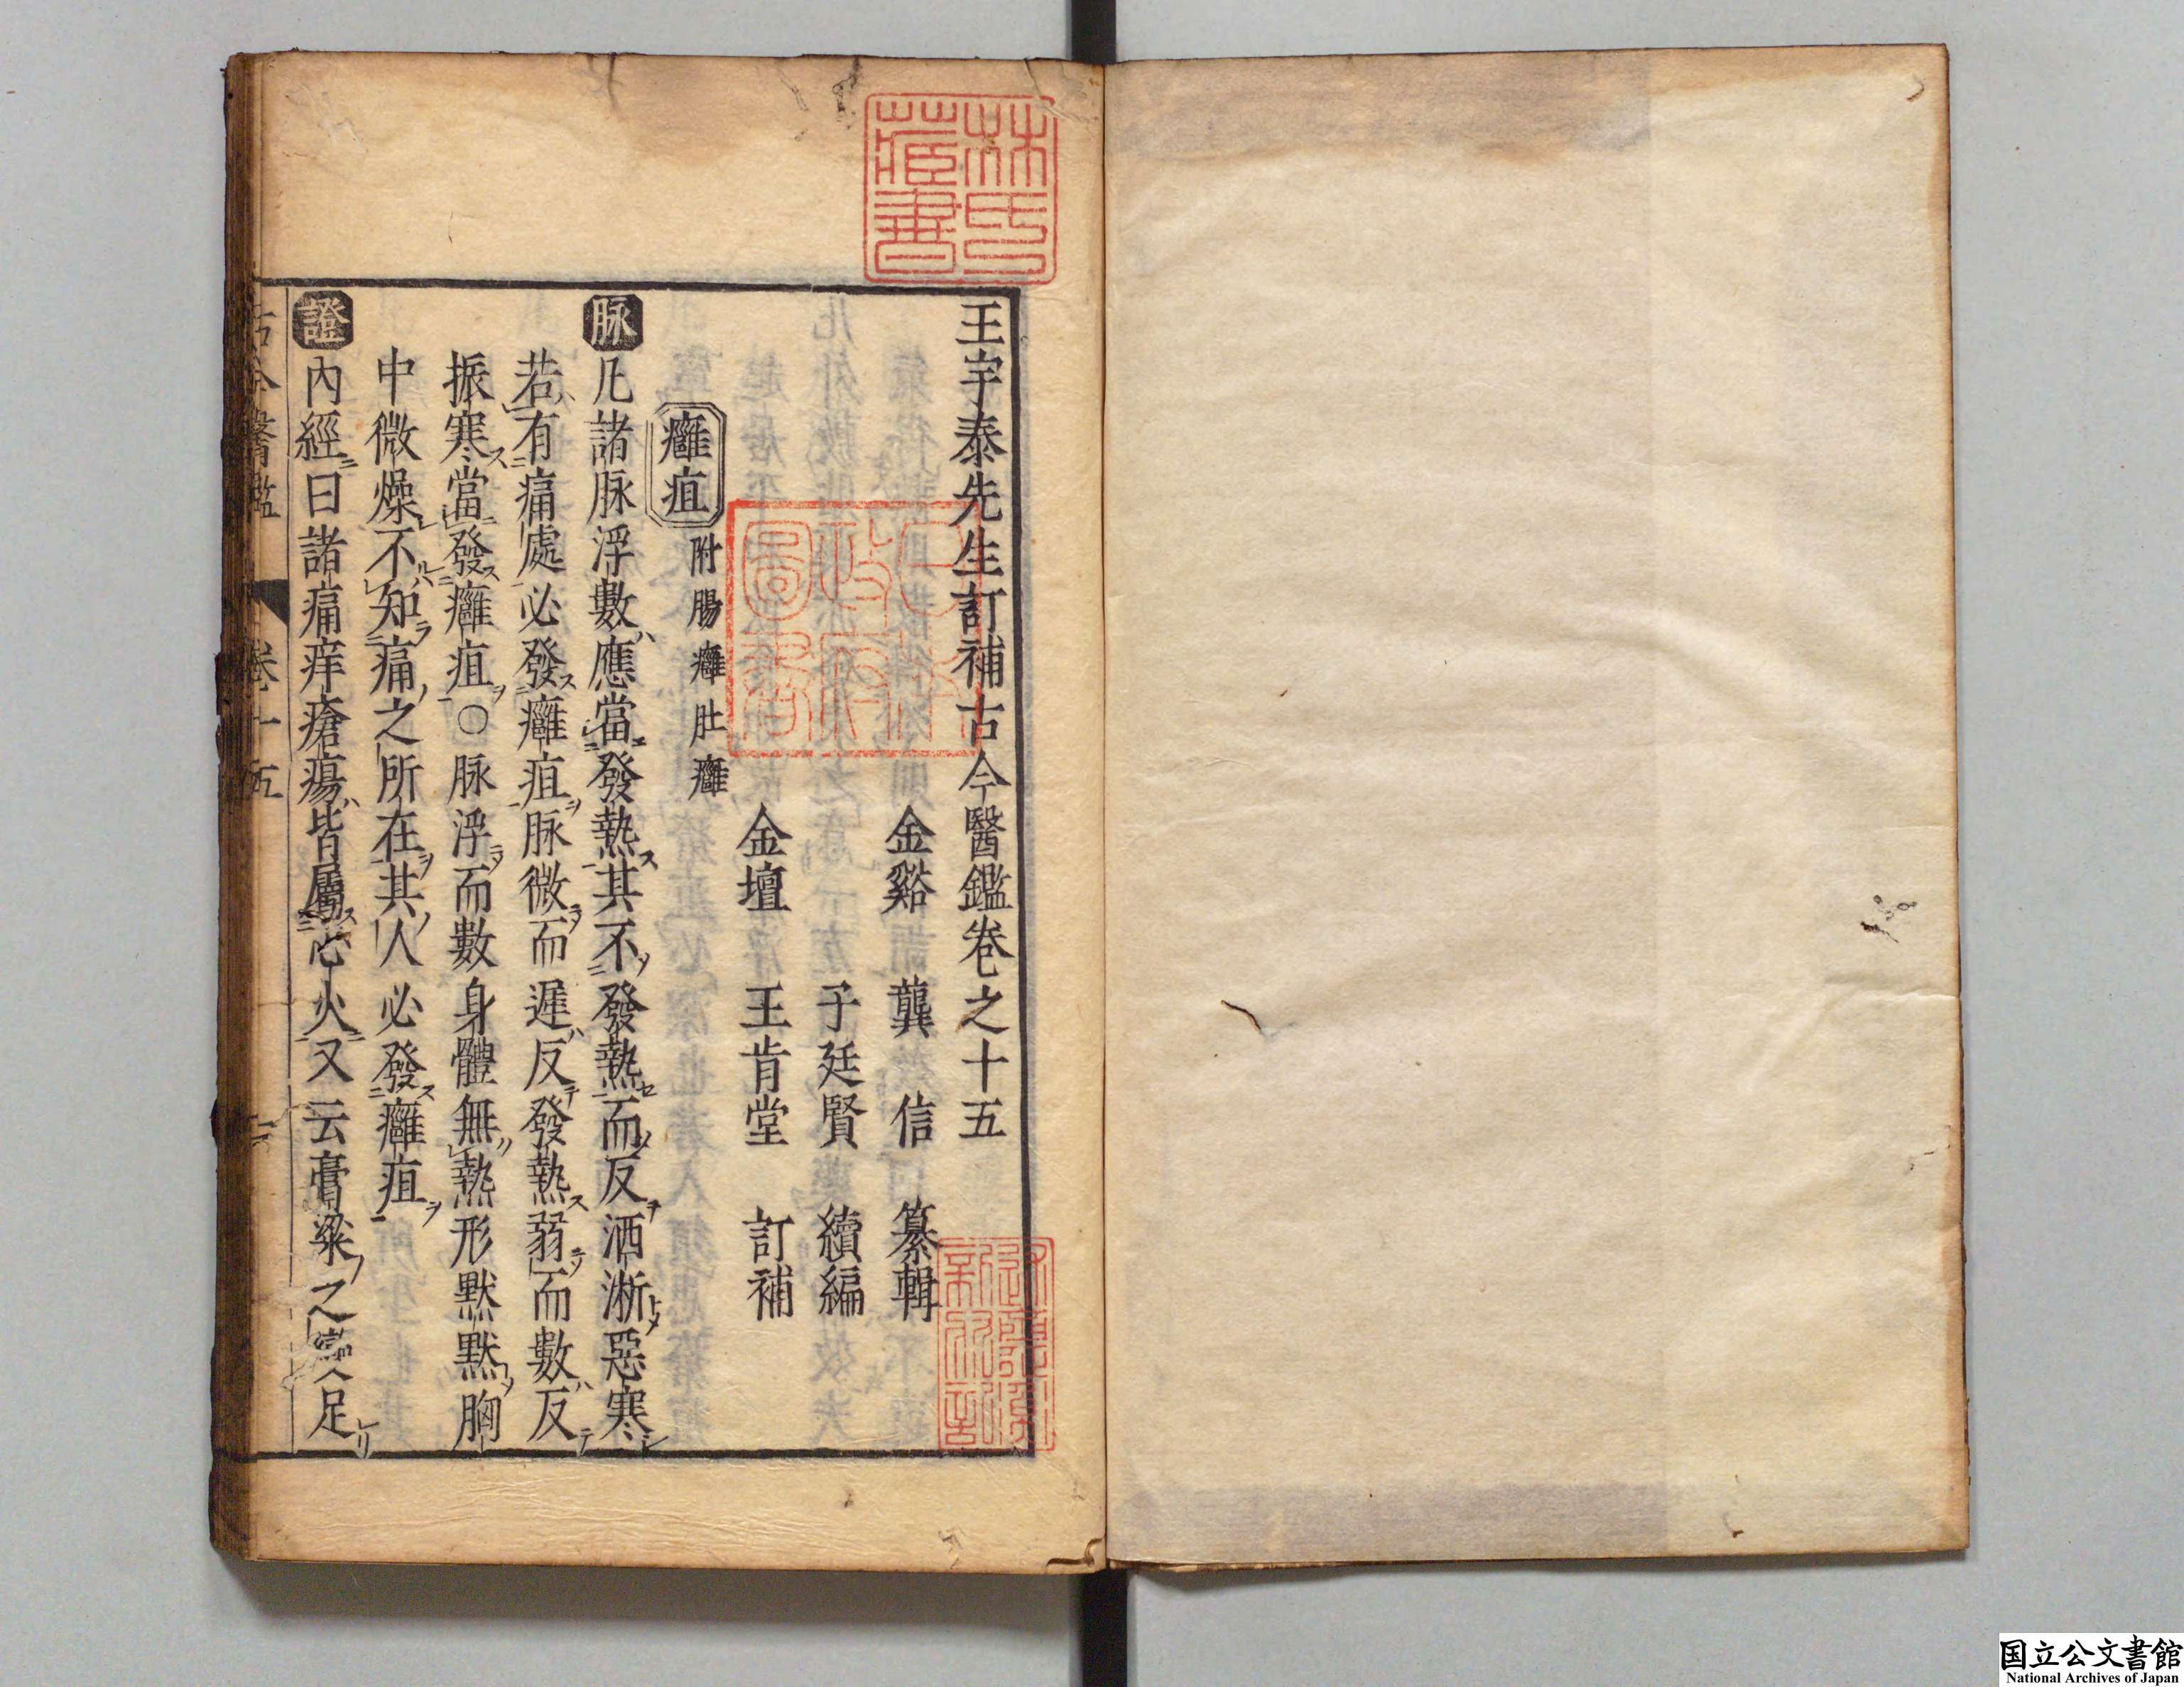 林氏藏書
王宇泰先生訂補古今醫鑑卷之十五
金谿　龔　信　纂輯
子廷賢　續編
金壇　王肯堂　訂補
癰疽　附腸癰肚癰
脉　凡諸脉浮數應當發熱其不發熱而反洒淅惡寒
若有痛處必發癰疽脉微而遲反發熱弱而數反
振寒當發癰疽○脉浮而數身體無熱形默默胸
中微燥不知痛之所在其人必發癰疽
證　內經曰諸痛痒瘡瘍皆屬心火又云膏粱之變足
古今醫鑑　卷十五　一
国立公文書館
National Archives of Japan